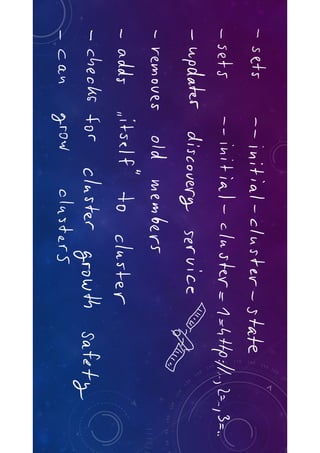 - sets --initial-cluster-state
- sets --initial-cluster=1=http://..,2=..,3=..
- updates discovery service
- removes old members
- adds „itself" to cluster
- checks for cluster growth safety
- can grow clusters